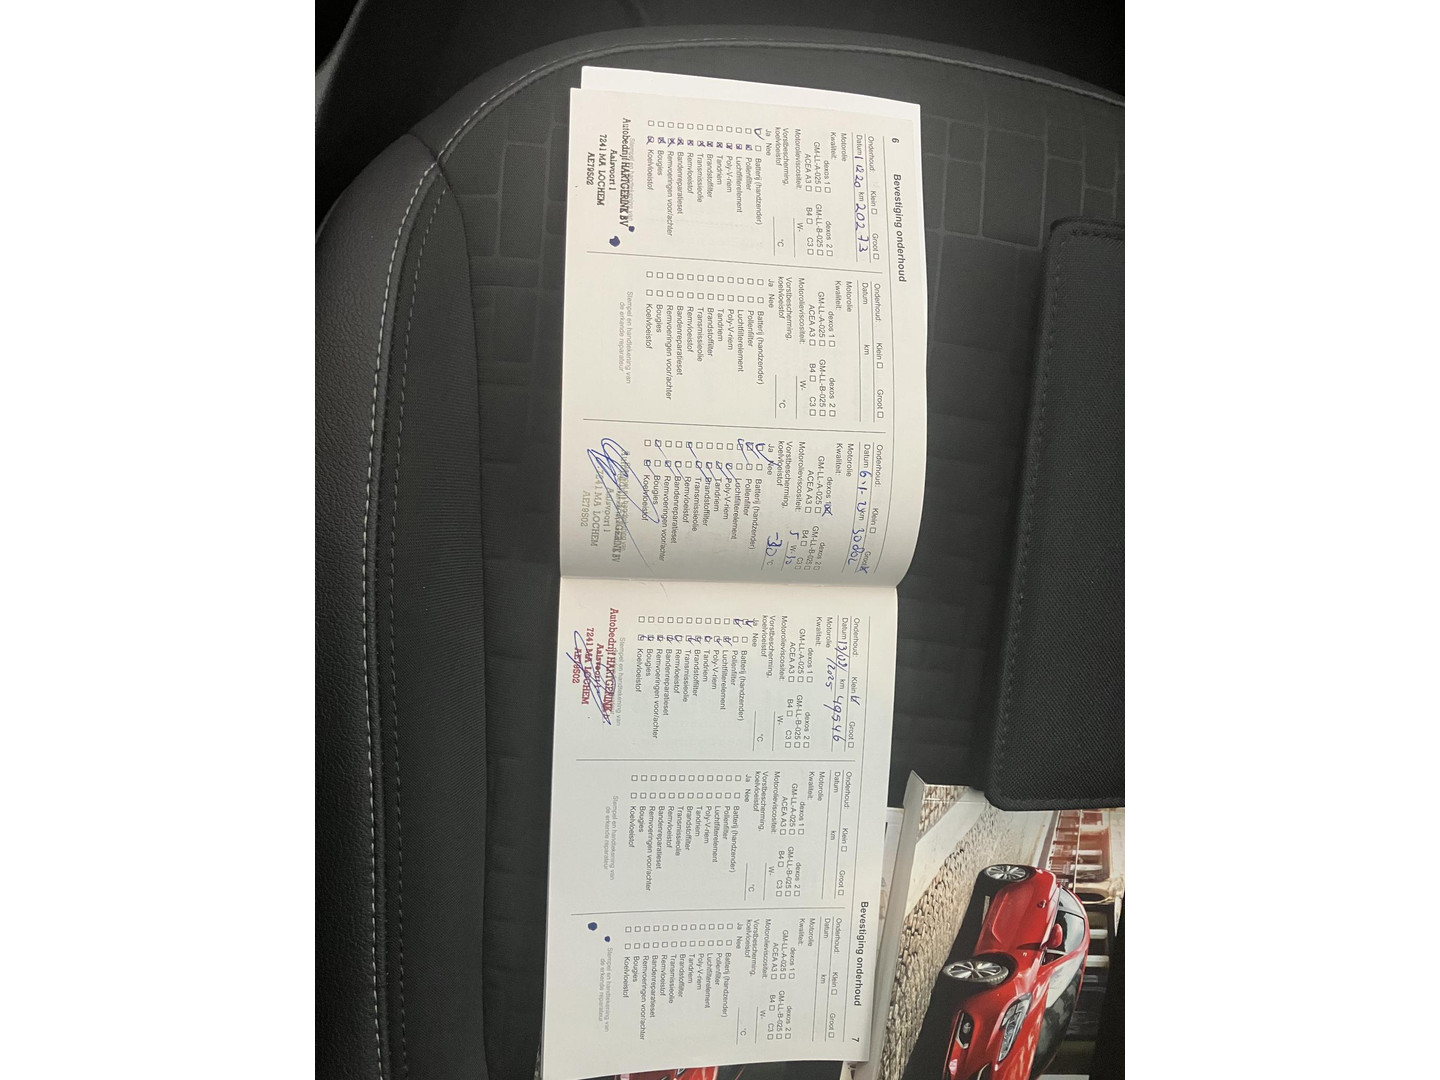 6 Bevestiging onderhoud
Onderhoud: Klein ☐ Groot ☐
Datum 1 12 20 km 20273
Motorolie
Kwaliteit: dexos 1 ☐ dexos 2 ☐
GM-LL-A-025 ☐ GM-LL-B-025 ☐
ACEA A3 ☐ B4 ☐ C3 ☐
Motorolieviscositeit: W-
Vorstbescherming,
koelvloeistof °C
Ja Nee
Batterij (handzender)
Pollenfilter
Luchtfilterelement
Poly-V-riem
Tandriem
Brandstoffilter
Transmissieolie
Remvloeistof
Bandenreparatieset
Remvoeringen voor/achter
Bougies
Koelvloeistof
Autobedrijf HARTGERINK BV
Aalsvoort 1
7241 MA LOCHEM
AE79S02
Onderhoud: Klein ☐ Groot ☐
Datum km
Motorolie
Kwaliteit: dexos 1 ☐ dexos 2 ☐
GM-LL-A-025 ☐ GM-LL-B-025 ☐
ACEA A3 ☐ B4 ☐ C3 ☐
Motorolieviscositeit: W-
Vorstbescherming,
koelvloeistof °C
Ja Nee
Batterij (handzender)
Pollenfilter
Luchtfilterelement
Poly-V-riem
Tandriem
Brandstoffilter
Transmissieolie
Remvloeistof
Bandenreparatieset
Remvoeringen voor/achter
Bougies
Koelvloeistof
Stempel en handtekening van
de erkende reparateur
Onderhoud: Klein ☐ Groot
Datum km
Motorolie
Kwaliteit: dexos 1 dexos 2 ☐
GM-LL-A-025 ☐ GM-LL-B-025 ☐
ACEA A3 ☐ B4 ☐ C3 ☐
Motorolieviscositeit: 5 W-
Vorstbescherming,
koelvloeistof -30 °C
Ja Nee
Batterij (handzender)
Pollenfilter
Luchtfilterelement
Poly-V-riem
Tandriem
Brandstoffilter
Transmissieolie
Remvloeistof
Bandenreparatieset
Remvoeringen voor/achter
Bougies
Koelvloeistof
Aalsvoort 1
7241 MA LOCHEM
AE79S02
Bevestiging onderhoud 7
Onderhoud: Klein Groot ☐
Datum 13/02/2025 km 49546
Motorolie
Kwaliteit: dexos 1 ☐ dexos 2 ☐
GM-LL-A-025 ☐ GM-LL-B-025 ☐
ACEA A3 ☐ B4 ☐ C3 ☐
Motorolieviscositeit: W-
Vorstbescherming,
koelvloeistof °C
Ja Nee
Batterij (handzender)
Pollenfilter
Luchtfilterelement
Poly-V-riem
Tandriem
Brandstoffilter
Transmissieolie
Remvloeistof
Bandenreparatieset
Remvoeringen voor/achter
Bougies
Koelvloeistof
Stempel en handtekening van
Autobedrijf HARTGERINK
Aalsvoort
7241 MA LOCHEM
AE79S02
Onderhoud: Klein ☐ Groot ☐
Datum km
Motorolie
Kwaliteit: dexos 1 ☐ dexos 2 ☐
GM-LL-A-025 ☐ GM-LL-B-025 ☐
ACEA A3 ☐ B4 ☐ C3 ☐
Motorolieviscositeit: W-
Vorstbescherming,
koelvloeistof °C
Ja Nee
Batterij (handzender)
Pollenfilter
Luchtfilterelement
Poly-V-riem
Tandriem
Brandstoffilter
Transmissieolie
Remvloeistof
Bandenreparatieset
Remvoeringen voor/achter
Bougies
Koelvloeistof
Stempel en handtekening van
de erkende reparateur
Onderhoud: Klein ☐ Groot ☐
Datum km
Motorolie
Kwaliteit: dexos 1 ☐ dexos 2 ☐
GM-LL-A-025 ☐ GM-LL-B-025 ☐
ACEA A3 ☐ B4 ☐ C3 ☐
Motorolieviscositeit: W-
Vorstbescherming,
koelvloeistof °C
Ja Nee
Batterij (handzender)
Pollenfilter
Luchtfilterelement
Poly-V-riem
Tandriem
Brandstoffilter
Transmissieolie
Remvloeistof
Bandenreparatieset
Remvoeringen voor/achter
Bougies
Koelvloeistof
Stempel en handtekening van
de erkende reparateur